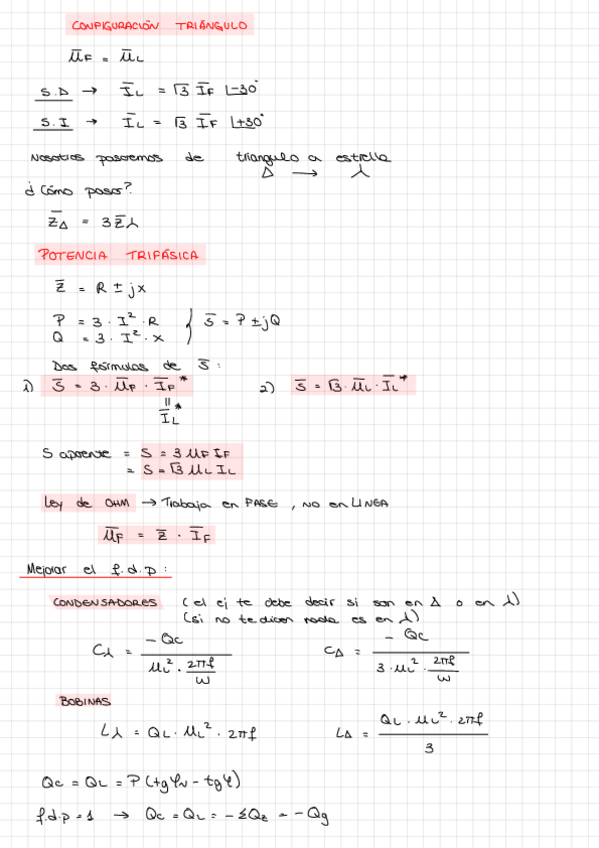 CONFIGURACIÓN TRIÁNGULO
U̅F = U̅L
S.D → I̅L = √3 I̅F ∠-30°
S.I → I̅L = √3 I̅F ∠+30°
Nosotros pasaremos de triangulo a estrella
Δ → ⅄
¿Cómo pasar?
Z̅Δ = 3Z̅⅄
POTENCIA TRIFÁSICA
Z̅ = R ± jx
P = 3 · I² · R
Q = 3 · I² · X } S̅ = P ± jQ
Dos fórmulas de S̅ :
1) S̅ = 3 · U̅F · I̅F* 2) S̅ = √3 · U̅L · I̅L*
=
I̅L*
S aparente = S = 3 UF IF
= S = √3 UL IL
Ley de OHM → Trabaja en FASE , NO en LINEA
U̅F = Z̅ · I̅F
Mejorar el f.d.p :
CONDENSADORES (el ej te debe decir si son en Δ o en ⅄)
(si no te dicen nada es en ⅄)
C⅄ = -Qc / UL² · 2πf CΔ = -Qc / 3 · UL² · 2πf
W W
BOBINAS
L⅄ = QL · UL² · 2πf LΔ = QL · UL² · 2πf / 3
Qc = QL = P (tgφN - tgφ)
f.d.p = 1 → Qc = QL = -ΣQz = -Qg